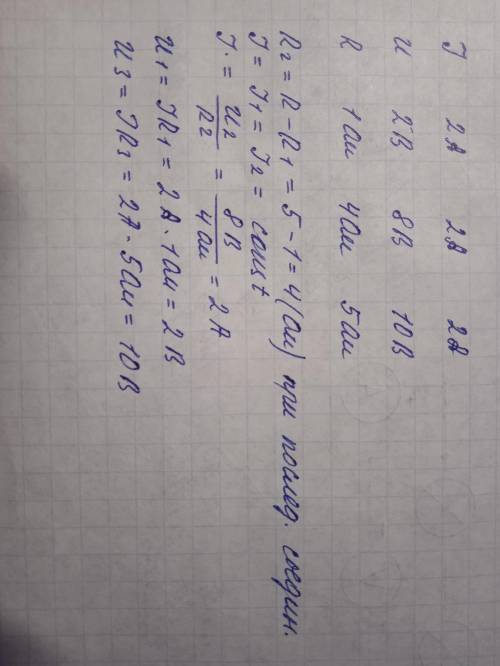 I 2А 2А 2А
U 2В 8В 10В
R 1Ом 4Ом 5Ом
R2 = R - R1 = 5 - 1 = 4 (Ом) при послед. соедин.
I = I1 = I2 = const
I = U2/R2 = 8В/4Ом = 2А
U1 = IR1 = 2А · 1Ом = 2В
U3 = IR3 = 2А · 5Ом = 10В